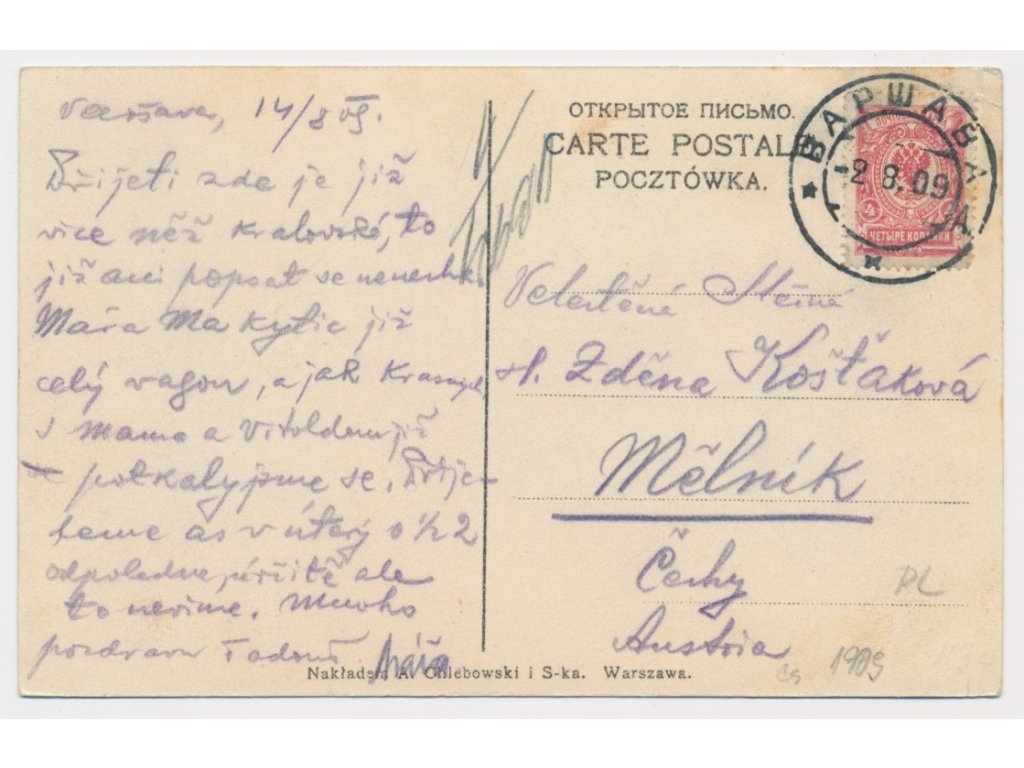 14/8 09.
Přijeti zde je již
vice něž kralovské, to
již ani popsat se
Mářa Ma kytic již
celý vagon, a jak
s mama a Vitoldem již
potkalyjsme se. Přije-
deme as v úterý o ½ 2
odpoledne, určitě ale
to nevime. Mnoho
pozdravu
Mářa
ОТКРЫТОЕ ПИСЬМО.
CARTE POSTAL
POCZTÓWKA.
ВАРШАВА
2 8. 09
ЧЕТЫРЕ КОПѢЙКИ
Velectěná
sl. Zděna Košťáková
Mělník
Čechy
Austria
PL
1909
Nakładem A. Chlebowski i S-ka. Warszawa.